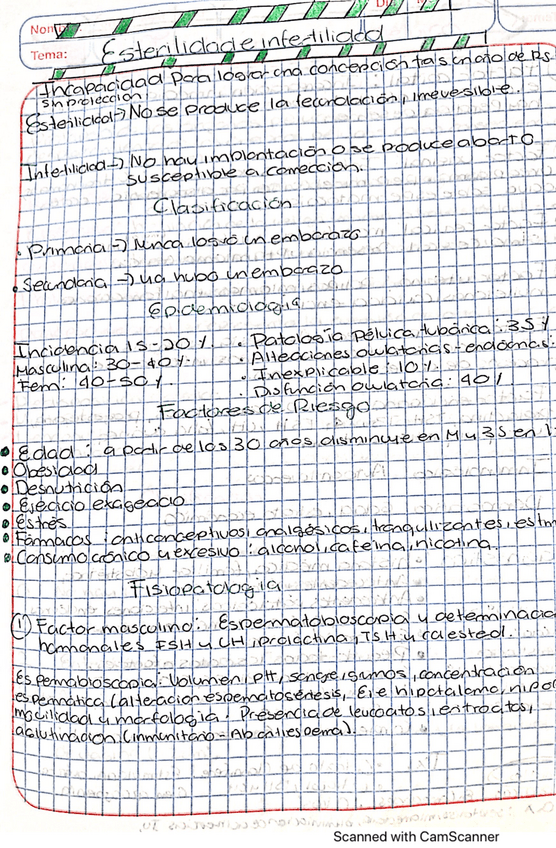 Nom
Tema: Esterilidad e infertilidad
Incapacidad para lograr una concepción tras un año de Rs.
sin protección
Esterilidad → No se produce la fecundación, irreversible.
Infertilidad → No hay implantación o se produce aborto
susceptible a corrección.
Clasificación
• Primaria → Nunca logró un embarazo
• Secundaria → ya hubo un embarazo
Epidemiología
Incidencia 15-20 %. • Patología pélvica tubárica: 35 %
Masculina: 30-40 %. • Alteaciones ovulatorias-endócrinas:
Fem: 40-50 %. • Inexplicable: 10 %.
• Disfunción ovulatoria: 40 %
Factores de Riesgo
• Edad: a partir de los 30 años disminuye en M y 35 en
• Obesidad
• Desnutrición
• Ejecicio exagerado
• Estrés
• Fármacos: anticonceptivos, analgésicos, tranquilizantes, estim
• Consumo crónico y excesivo: alcohol, cafeína, nicotina.
Fisiopatología
① Factor masculino: Espermatobioscopia y determinacio
hormonales FSH y LH, prolactina, TSH y
Espermabioscopia: Volumen, pH, sangre, grumos, concentración
espermática (alteracion espermatogénesis, Eje hipotálamo, hipof
movilidad y morfología. Presencia de leucocitos, eritrocitos,
aglutinación (inmunitario - Ab antiesperma).
Scanned with CamScanner